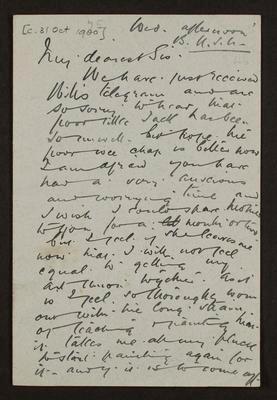 [c. 31 Oct 1900]
Wed. afternoon
B.H.S.h.
My dearest Sis.
We have just received
Will's telegram and are
so sorry to hear that
poor little Jack has been
so unwell - but hope the
poor wee chap is better now
I am afraid you have
had a very anxious
and worrying time and
I wish I could spare Mother
to you for a month or two
but I feel if she leaves me
now that I will not feel
equal to getting my
Art Union
is I feel so thoroughly worn
out with the long strain
of teaching & painting that
it takes me all my pluck
to start painting again for
it - and if it is to come off